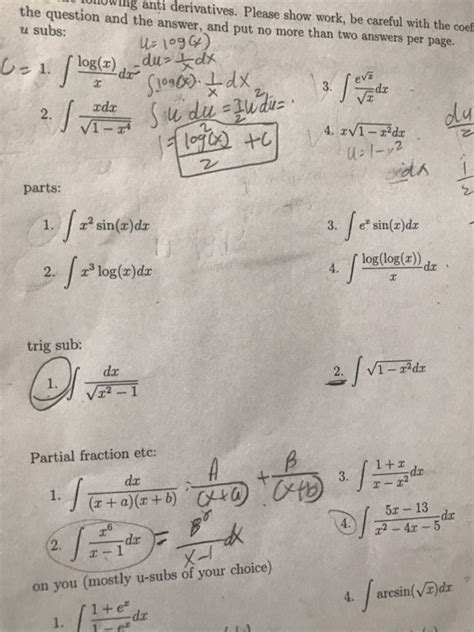 following anti derivatives. Please show work, be careful with the coef
the question and the answer, and put no more than two answers per page.
u subs:
u = log(x)
du = 1/x dx
1. ∫ log(x)/x dx
∫ log(x) · 1/x dx
3. ∫ e^√x/√x dx
2. ∫ xdx/√(1 − x⁴)
∫ u du =
log²(x)/2 + C
4. x√(1 − x²)dx
du
u = 1 − x²
parts:
1. ∫ x² sin(x)dx
3. ∫ eˣ sin(x)dx
2. ∫ x³ log(x)dx
4. ∫ log(log(x))/x dx
trig sub:
1. ∫ dx/√(x² − 1)
2. ∫ √(1 − x²)dx
Partial fraction etc:
1. ∫ dx/((x + a)(x + b))
A/(x+a) + B/(x+b)
3. ∫ (1 + x)/(x − x²) dx
2. ∫ x⁶/(x − 1) dx
=
x-1 dx
4. ∫ (5x − 13)/(x² − 4x − 5) dx
on you (mostly u-subs of your choice)
1. ∫ (1 + eˣ)/(1 − eˣ) dx
4. ∫ arcsin(√x)dx